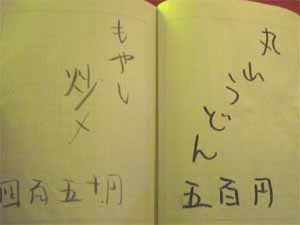 丸山うどん
五百円
もやし
炒メ
四百五十円